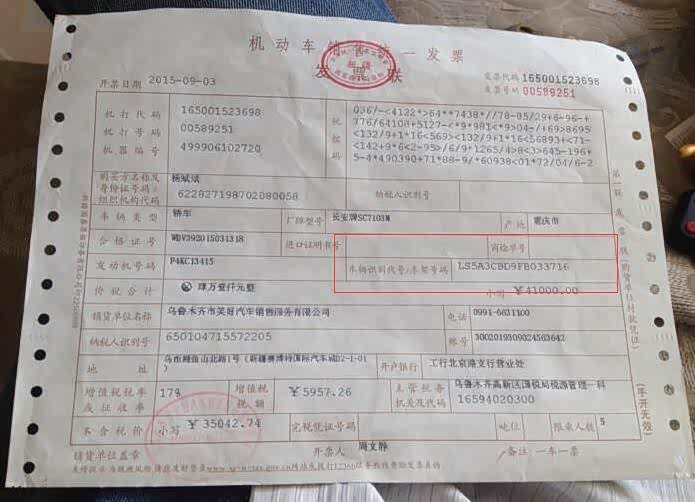 机动车销售统一发票
发票联
开票日期 2015-09-03
发票代码 165001523698
发票号码 00589251
机打代码 165001523698
机打号码 00589251
机器编号 499906102720
税控码
036/-<4122*>64**7438*//78-05/29+6-96-+
776/64108+5127-<*9*981<*9>04-/+69>8695
<132/9+1*16<569><132/9+1*16<56893+<71-
<142+9*6<2-95>/6/9*1265/4>8<3>645-196+
5-4*490390+71*88-9/*60938<01*72/04/6-2
购买方名称及身份证号码/组织机构代码 杨斌斌
622827198702080058
纳税人识别号
车辆类型 轿车 厂牌型号 长安牌SC7103M 产地 重庆市
合格证号 WDV392015031318 进口证明书号 商检单号
发动机号码 F4KC13415 车辆识别代号/车架号码 LS5A3CBD9FB033716
价税合计 肆万壹仟元整 小写 ￥41000.00
销货单位名称 乌鲁木齐市笑好汽车销售服务有限公司 电话 0991-6631100
纳税人识别号 650104715572205 账号 3002019309024563642
地址 乌市鲤鱼山北路1号(新疆赛博特国际汽车城D2-1-01) 开户银行 工行北京路支行营业处
增值税税率或征收率 17% 增值税税额 ￥5957.26 主管税务机关及代码 乌鲁木齐高新区国税局税源管理一科
16594020300
不含税价 小写 ￥35042.74 完税凭证号码 吨位 限乘人数 5
销货单位盖章 开票人 周文静 备注 一车一票
第一联 发票联(购货单位付款凭证)
(手开无效)